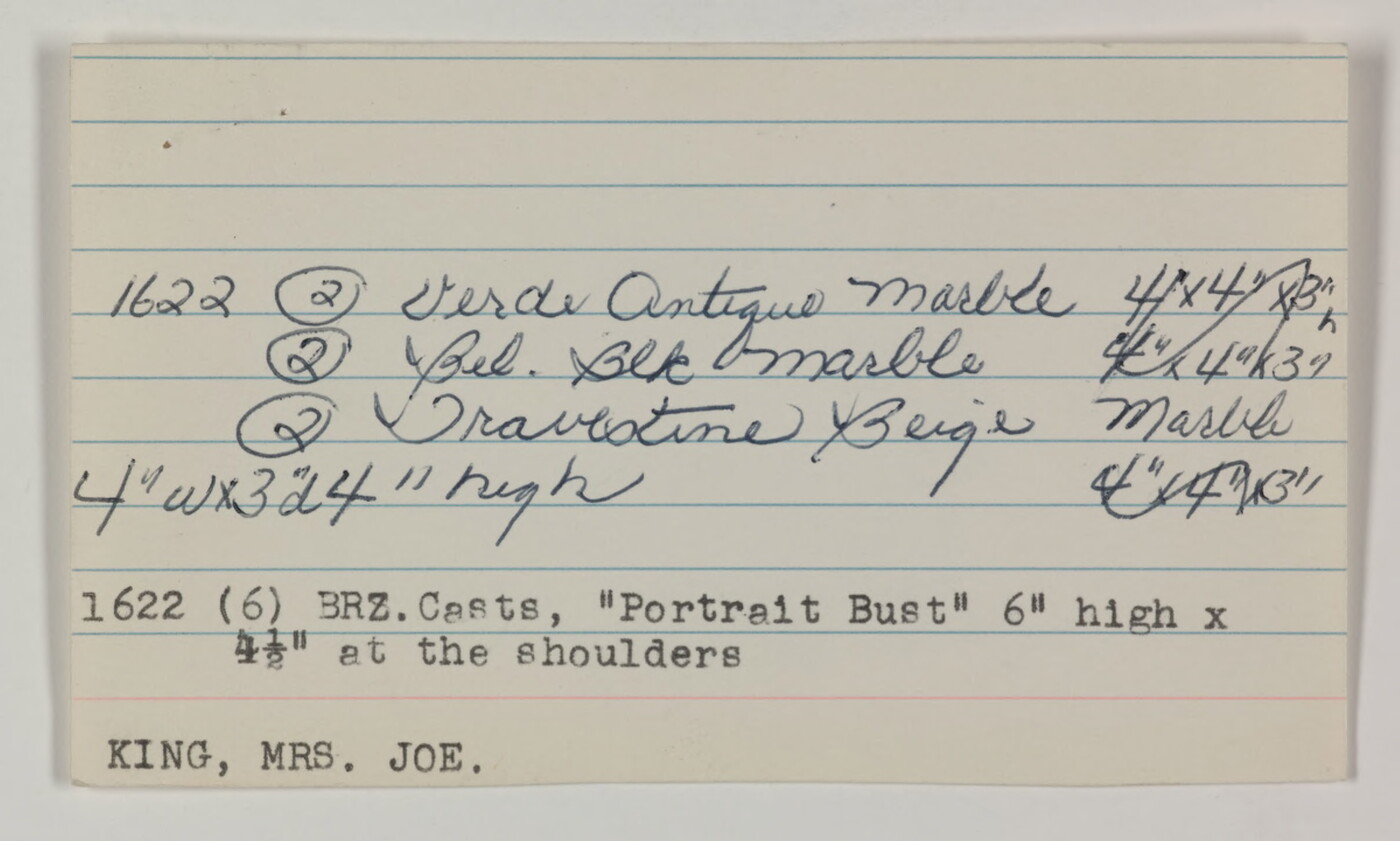 1622 (2) Verde Antique Marble 4"x4"x3"h
(2) Bel. Blk Marble 4"x4"x3"
(2) Travestine Beige Marble
4"wx3"d4" high 4"x4"x3"
1622 (6) BRZ.Casts, "Portrait Bust" 6" high x
4½" at the shoulders
KING, MRS. JOE.